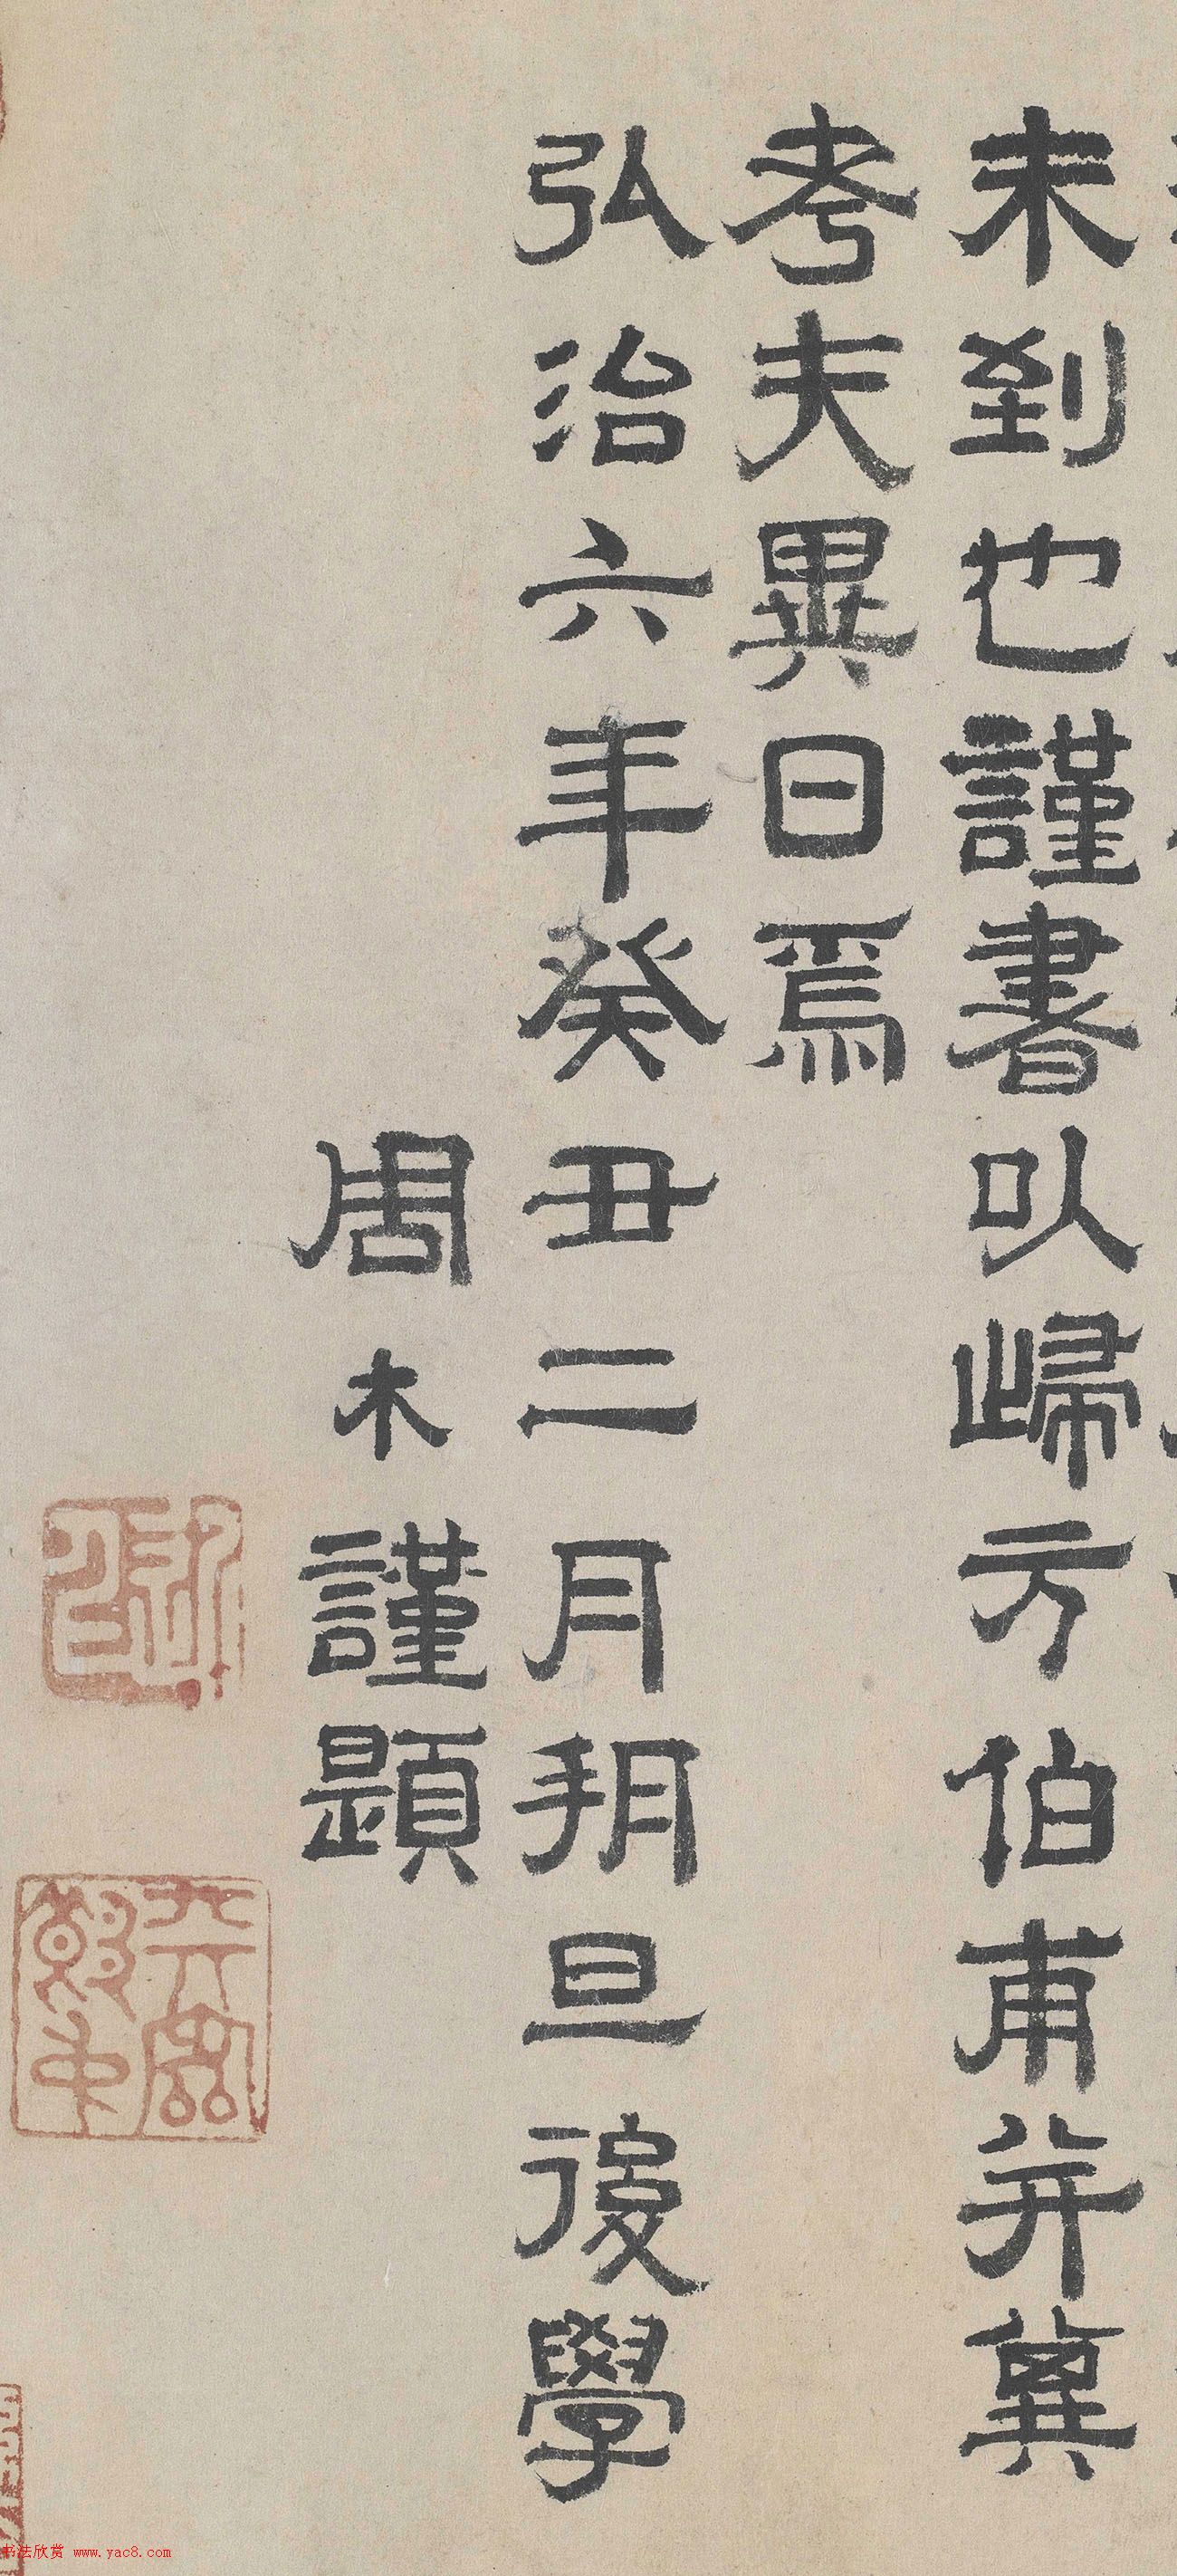 未到也謹書以歸方伯甫并冀
考夫異日焉
弘治六年癸丑二月朔旦後學
周木謹題
书法欣赏 www.yac8.com